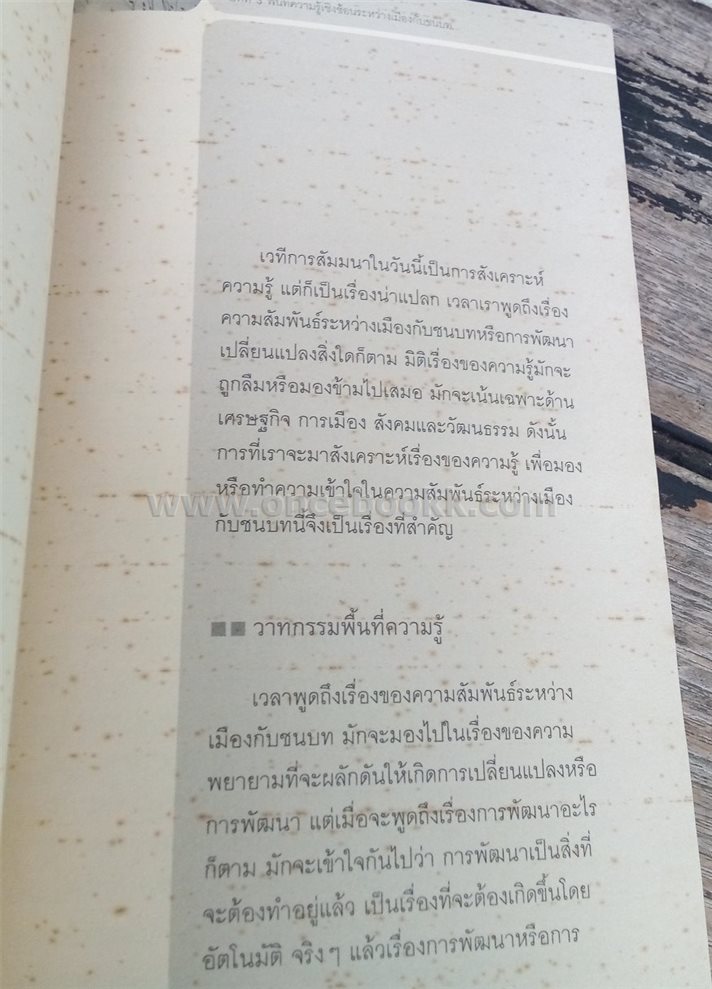 3 พื้นที่ความรู้เชิงซ้อนระหว่างเมืองกับชนบท
เวทีการสัมมนาในวันนี้เป็นการสังเคราะห์
ความรู้ แต่ก็เป็นเรื่องน่าแปลก เวลาเราพูดถึงเรื่อง
ความสัมพันธ์ระหว่างเมืองกับชนบทหรือการพัฒนา
เปลี่ยนแปลงสิ่งใดก็ตาม มิติเรื่องของความรู้มักจะ
ถูกลืมหรือมองข้ามไปเสมอ มักจะเน้นเฉพาะด้าน
เศรษฐกิจ การเมือง สังคมและวัฒนธรรม ดังนั้น
การที่เราจะมาสังเคราะห์เรื่องของความรู้ เพื่อมอง
หรือทำความเข้าใจในความสัมพันธ์ระหว่างเมือง
กับชนบทนี้จึงเป็นเรื่องที่สำคัญ
www.oncebookk.com
วาทกรรมพื้นที่ความรู้
เวลาพูดถึงเรื่องของความสัมพันธ์ระหว่าง
เมืองกับชนบท มักจะมองไปในเรื่องของความ
พยายามที่จะผลักดันให้เกิดการเปลี่ยนแปลงหรือ
การพัฒนา แต่เมื่อจะพูดถึงเรื่องการพัฒนาอะไร
ก็ตาม มักจะเข้าใจกันไปว่า การพัฒนาเป็นสิ่งที่
จะต้องทำอยู่แล้ว เป็นเรื่องที่จะต้องเกิดขึ้นโดย
อัตโนมัติ จริงๆ แล้วเรื่องการพัฒนาหรือการ